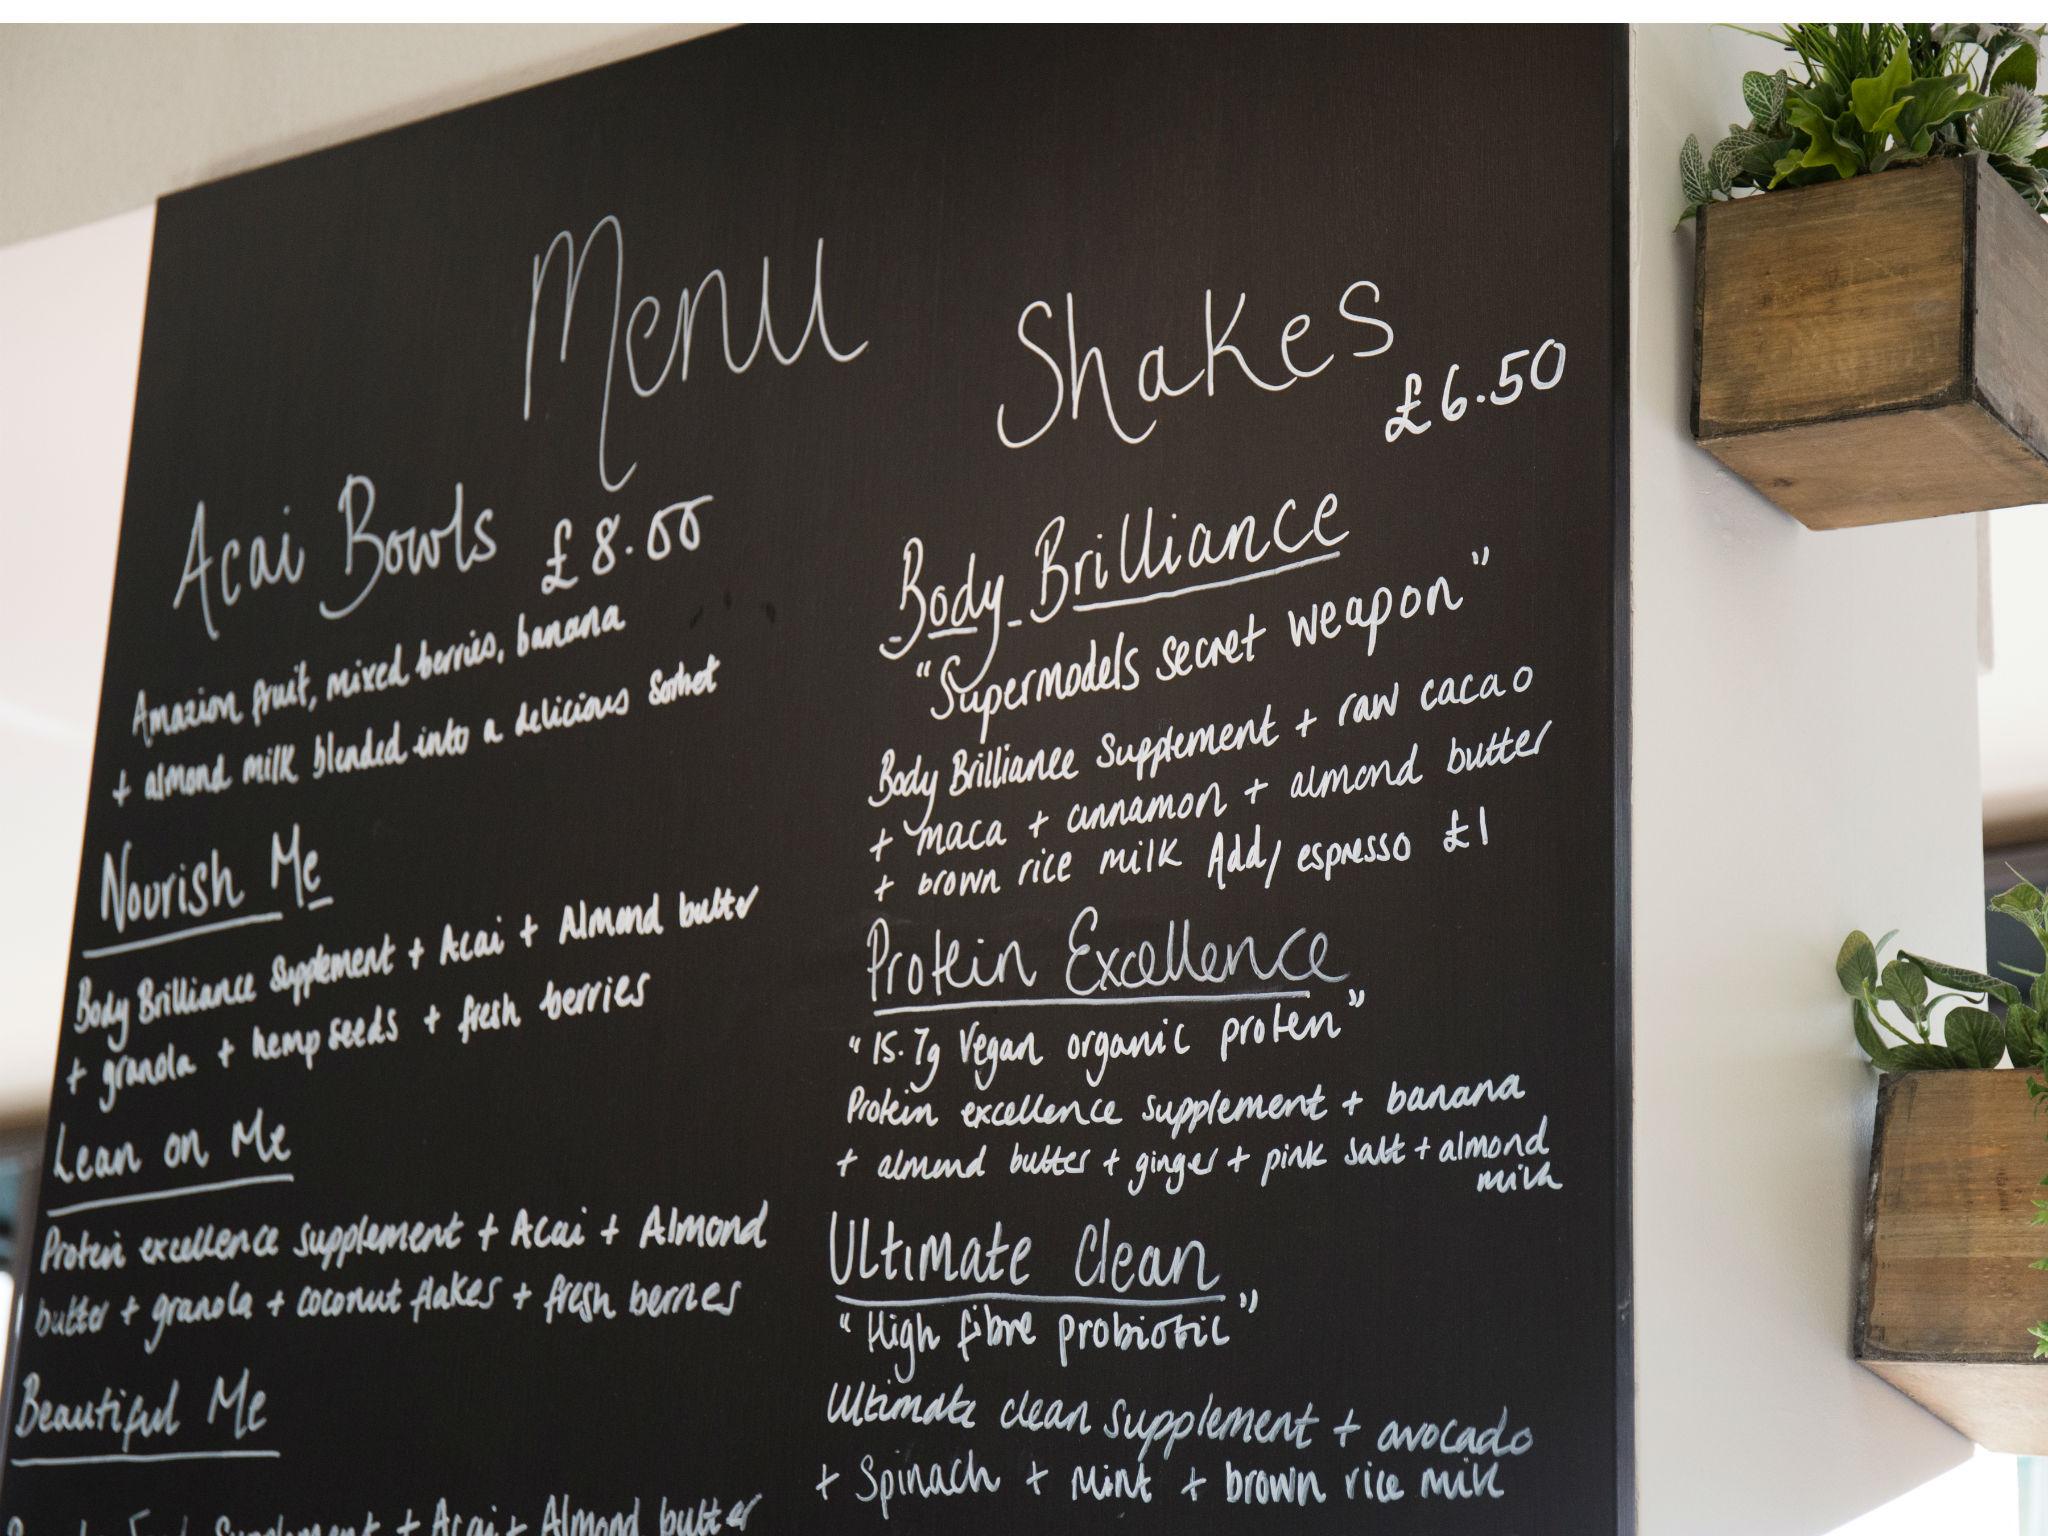 Menu
Acai Bowls £8.00
Amazion fruit, mixed berries, banana
+ almond milk blended into a delicious Sorbet
Nourish Me
Body Brilliance Supplement + Acai + Almond butter
+ granola + hemp seeds + fresh berries
Lean on Me
Protein excellence supplement + Acai + Almond
butter + granola + coconut flakes + fresh berries
Beautiful Me
Supplement + Acai + Almond butter
Shakes
£6.50
Body Brilliance
"Supermodels secret weapon"
Body Brilliance Supplement + raw cacao
+ maca + cinnamon + almond butter
+ brown rice milk Add/ espresso £1
Protein Excellence
"15.7g Vegan organic protein"
Protein excellence supplement + banana
+ almond butter + ginger + pink salt + almond
milk
Ultimate Clean
"High fibre probiotic"
Ultimate clean supplement + avocado
+ Spinach + Mint + brown rice milk